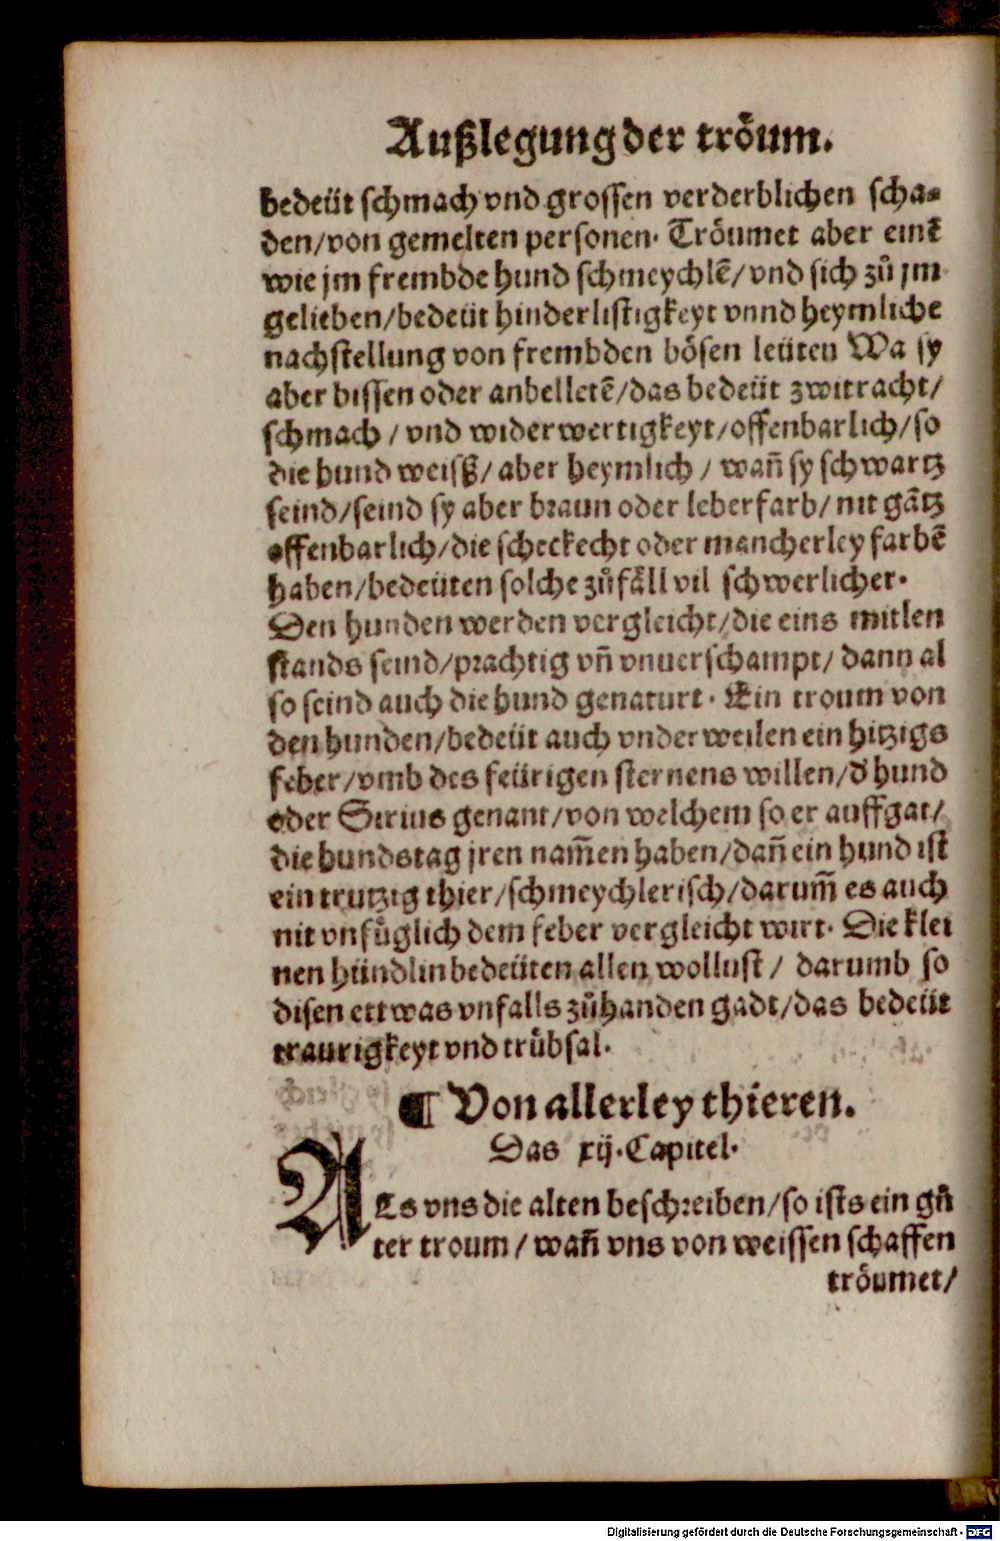 Außlegung der tröum.
bedeüt schmach vnd grossen verderblichen scha⸗
den/von gemelten personen. Tröumet aber einē
wie jm frembde hund schmeychlē/vnd sich zů jm
gelieben/bedeüt hinderlistigkeyt vnnd heymliche
nachstellung von frembden bösen leüten Wa sy
aber bissen oder anbelletē/das bedeüt zwitracht/
schmach / vnd widerwertigkeyt/offenbarlich/so
die hund weiß/ aber heymlich / wañ sy schwartz
seind/seind sy aber braun oder leberfarb/ nit gātz
offenbarlich/die scheckecht oder mancherley farbē
haben/bedeüten solche zůfäll vil schwerlicher.
Den hunden werden vergleicht/die eins mitlen
stands seind/prachtig vñ vnuerschampt/ dann al
so seind auch die hund genaturt. Ein troum von
den hunden/bedeüt auch vnderweilen ein hitzigs
feber/vmb des feürigen sternens willen/d' hund
oder Sirius genant/von welchem so er auffgat/
die hundstag jren nam̃en haben/dañ ein hund ist
ein trutzig thier/schmeychlerisch/darum̃ es auch
nit vnfůglich dem feber vergleicht wirt. Die klei
nen hündlin bedeüten allen wollust / darumb so
disen ettwas vnfalls zůhanden gadt/das bedeüt
traurigkeyt vnd trůbsal.
¶ Von allerley thieren.
Das xij. Capitel.
ALs vns die alten beschreiben/so ists ein gů
ter troum / wañ vns von weissen schaffen
tröumet/
Digitalisierung gefördert durch die Deutsche Forschungsgemeinschaft - DFG